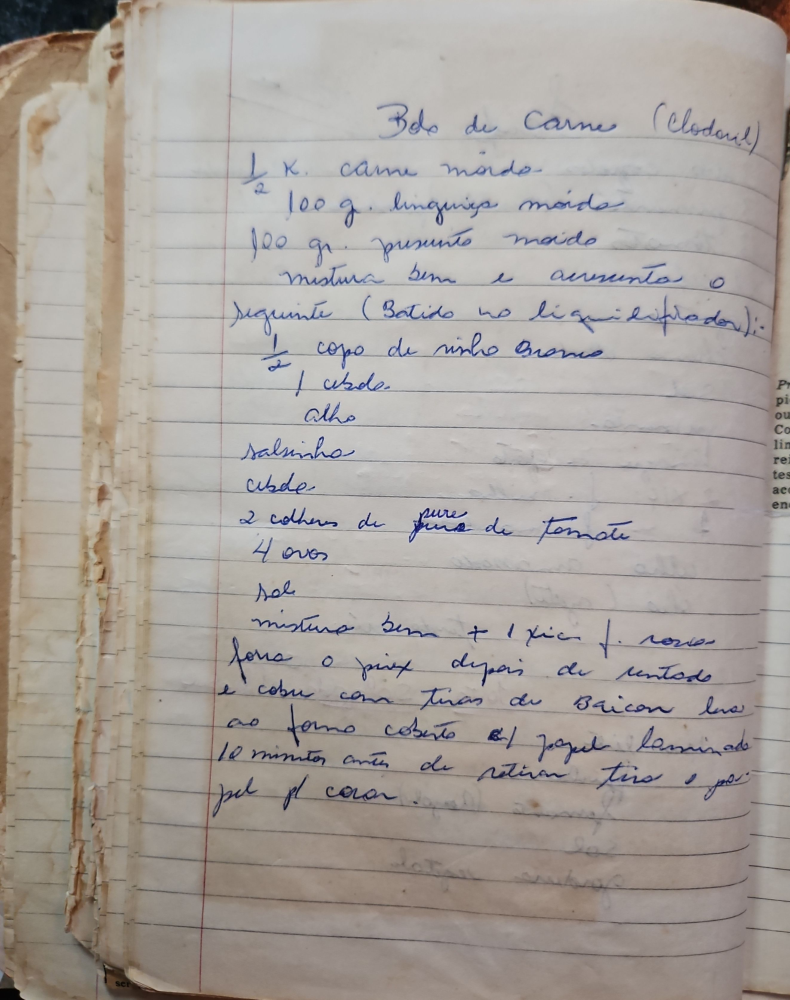 Bolo de Carne (Clodovil)
1/2 K. carne moida
100 g. linguiça moida
100 gr. presunto moido
mistura bem e acrescenta o
seguinte (Batido no liquidificador):-
1/2 copo de vinho Branco
1 cebola
alho
salsinha
cebola
2 colheres de pure de tomate
4 ovos
sal
mistura bem + 1 xic f. rosca
forra o pirex depois de untado
e cobre com tiras de Baicon leva
ao forno coberto c/ papel laminado
10 minutos antes de retirar tira o pa-
pel p/ corar.
Pr
pi
ou
Co
lin
re
tes
ac
en